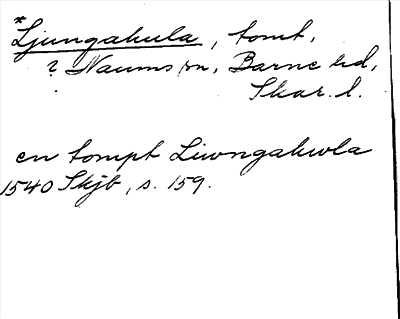 *
Ljungakula, tomt,
? Naums sn, Barne hd,
Skar. l.
en tompt Liwngakwla
1540 Skjb, s. 159.